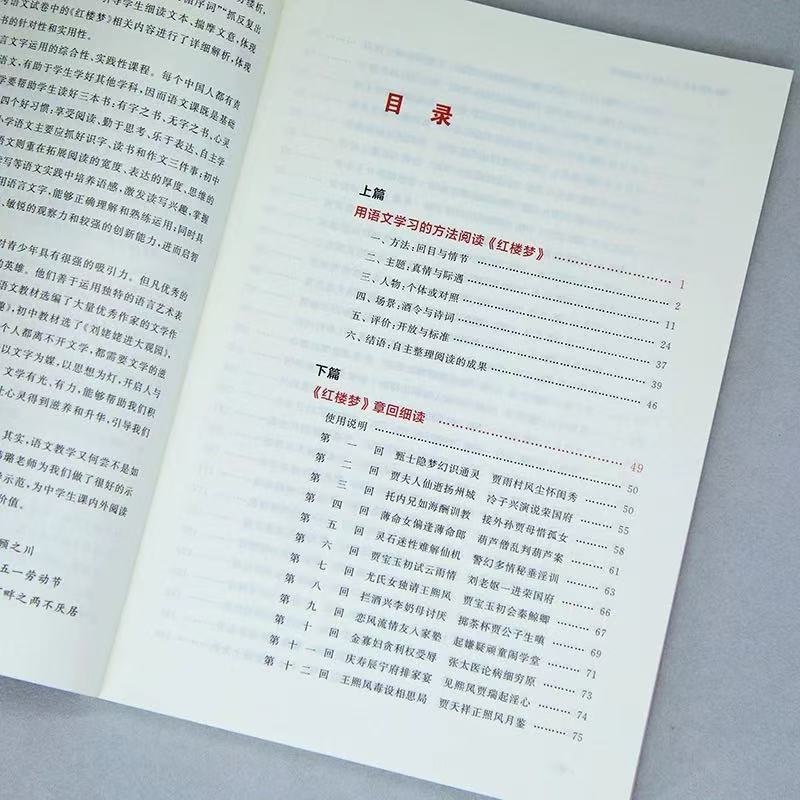 语序词""抓反复出
学生细读文本、揣摩文意,体现
语文试卷中的《红楼梦》相关内容进行了详细解析,体现
书的针对性和实用性。
言文字运用的综合性、实践性课程。每个中国人都有责
语文,有助于学生学好其他学科,因而语文课既是基础
学要帮助学生读好三本书:有字之书、无字之书、心灵
四个好习惯:享受阅读、勤于思考、乐于表达、自主学
小学语文主要应抓好识字、读书和作文三件事;初中
语文则重在拓展阅读的宽度、表达的厚度、思维的
读写等语文实践中培养语感,激发读写兴趣,掌握
用语言文字,能够正确理解和熟练运用;同时具
、敏锐的观察力和较强的创新能力,进而启智
对青少年具有很强的吸引力。但凡优秀的
的英雄。他们善于运用独特的语言艺术表
语文教材选编了大量优秀作家的文学作
趣》,初中教材选了《刘姥姥进大观园》,
个人都离不开文学,都需要文学的滋
以文字为媒,以思想为灯,开启人与
。文学有光、有力,能够帮助我们积
让心灵得到滋养和升华,引导我们
其实,语文教学又何尝不是如
老师为我们做了很好的示
示范,为中学生课内外阅读
价值。
顾之川
五一劳动节
畔之两不厌居
目 录
上篇
用语文学习的方法阅读《红楼梦》 1
一、方法:回目与情节 2
二、主题:真情与际遇 11
三、人物:个体或对照 24
四、场景:酒令与诗词 37
五、评价:开放与标准 39
六、结语:自主整理阅读的成果 46
下篇
《红楼梦》章回细读 49
使用说明 50
第一回 甄士隐梦幻识通灵 贾雨村风尘怀闺秀 50
第二回 贾夫人仙逝扬州城 冷子兴演说荣国府 55
第三回 托内兄如海酬训教 接外孙贾母惜孤女 58
第四回 薄命女偏逢薄命郎 葫芦僧乱判葫芦案 61
第五回 灵石迷性难解仙机 警幻多情秘垂淫训 63
第六回 贾宝玉初试云雨情 刘老妪一进荣国府 66
第七回 尤氏女独请王熙凤 贾宝玉初会秦鲸卿 67
第八回 拦酒兴李奶母讨厌 掷茶杯贾公子生嗔 69
第九回 恋风流情友入家塾 起嫌疑顽童闹学堂 71
第十回 金寡妇贪利权受辱 张太医论病细穷原 73
第十一回 庆寿辰宁府排家宴 见熙凤贾瑞起淫心 74
第十二回 王熙凤毒设相思局 贾天祥正照风月鉴 75